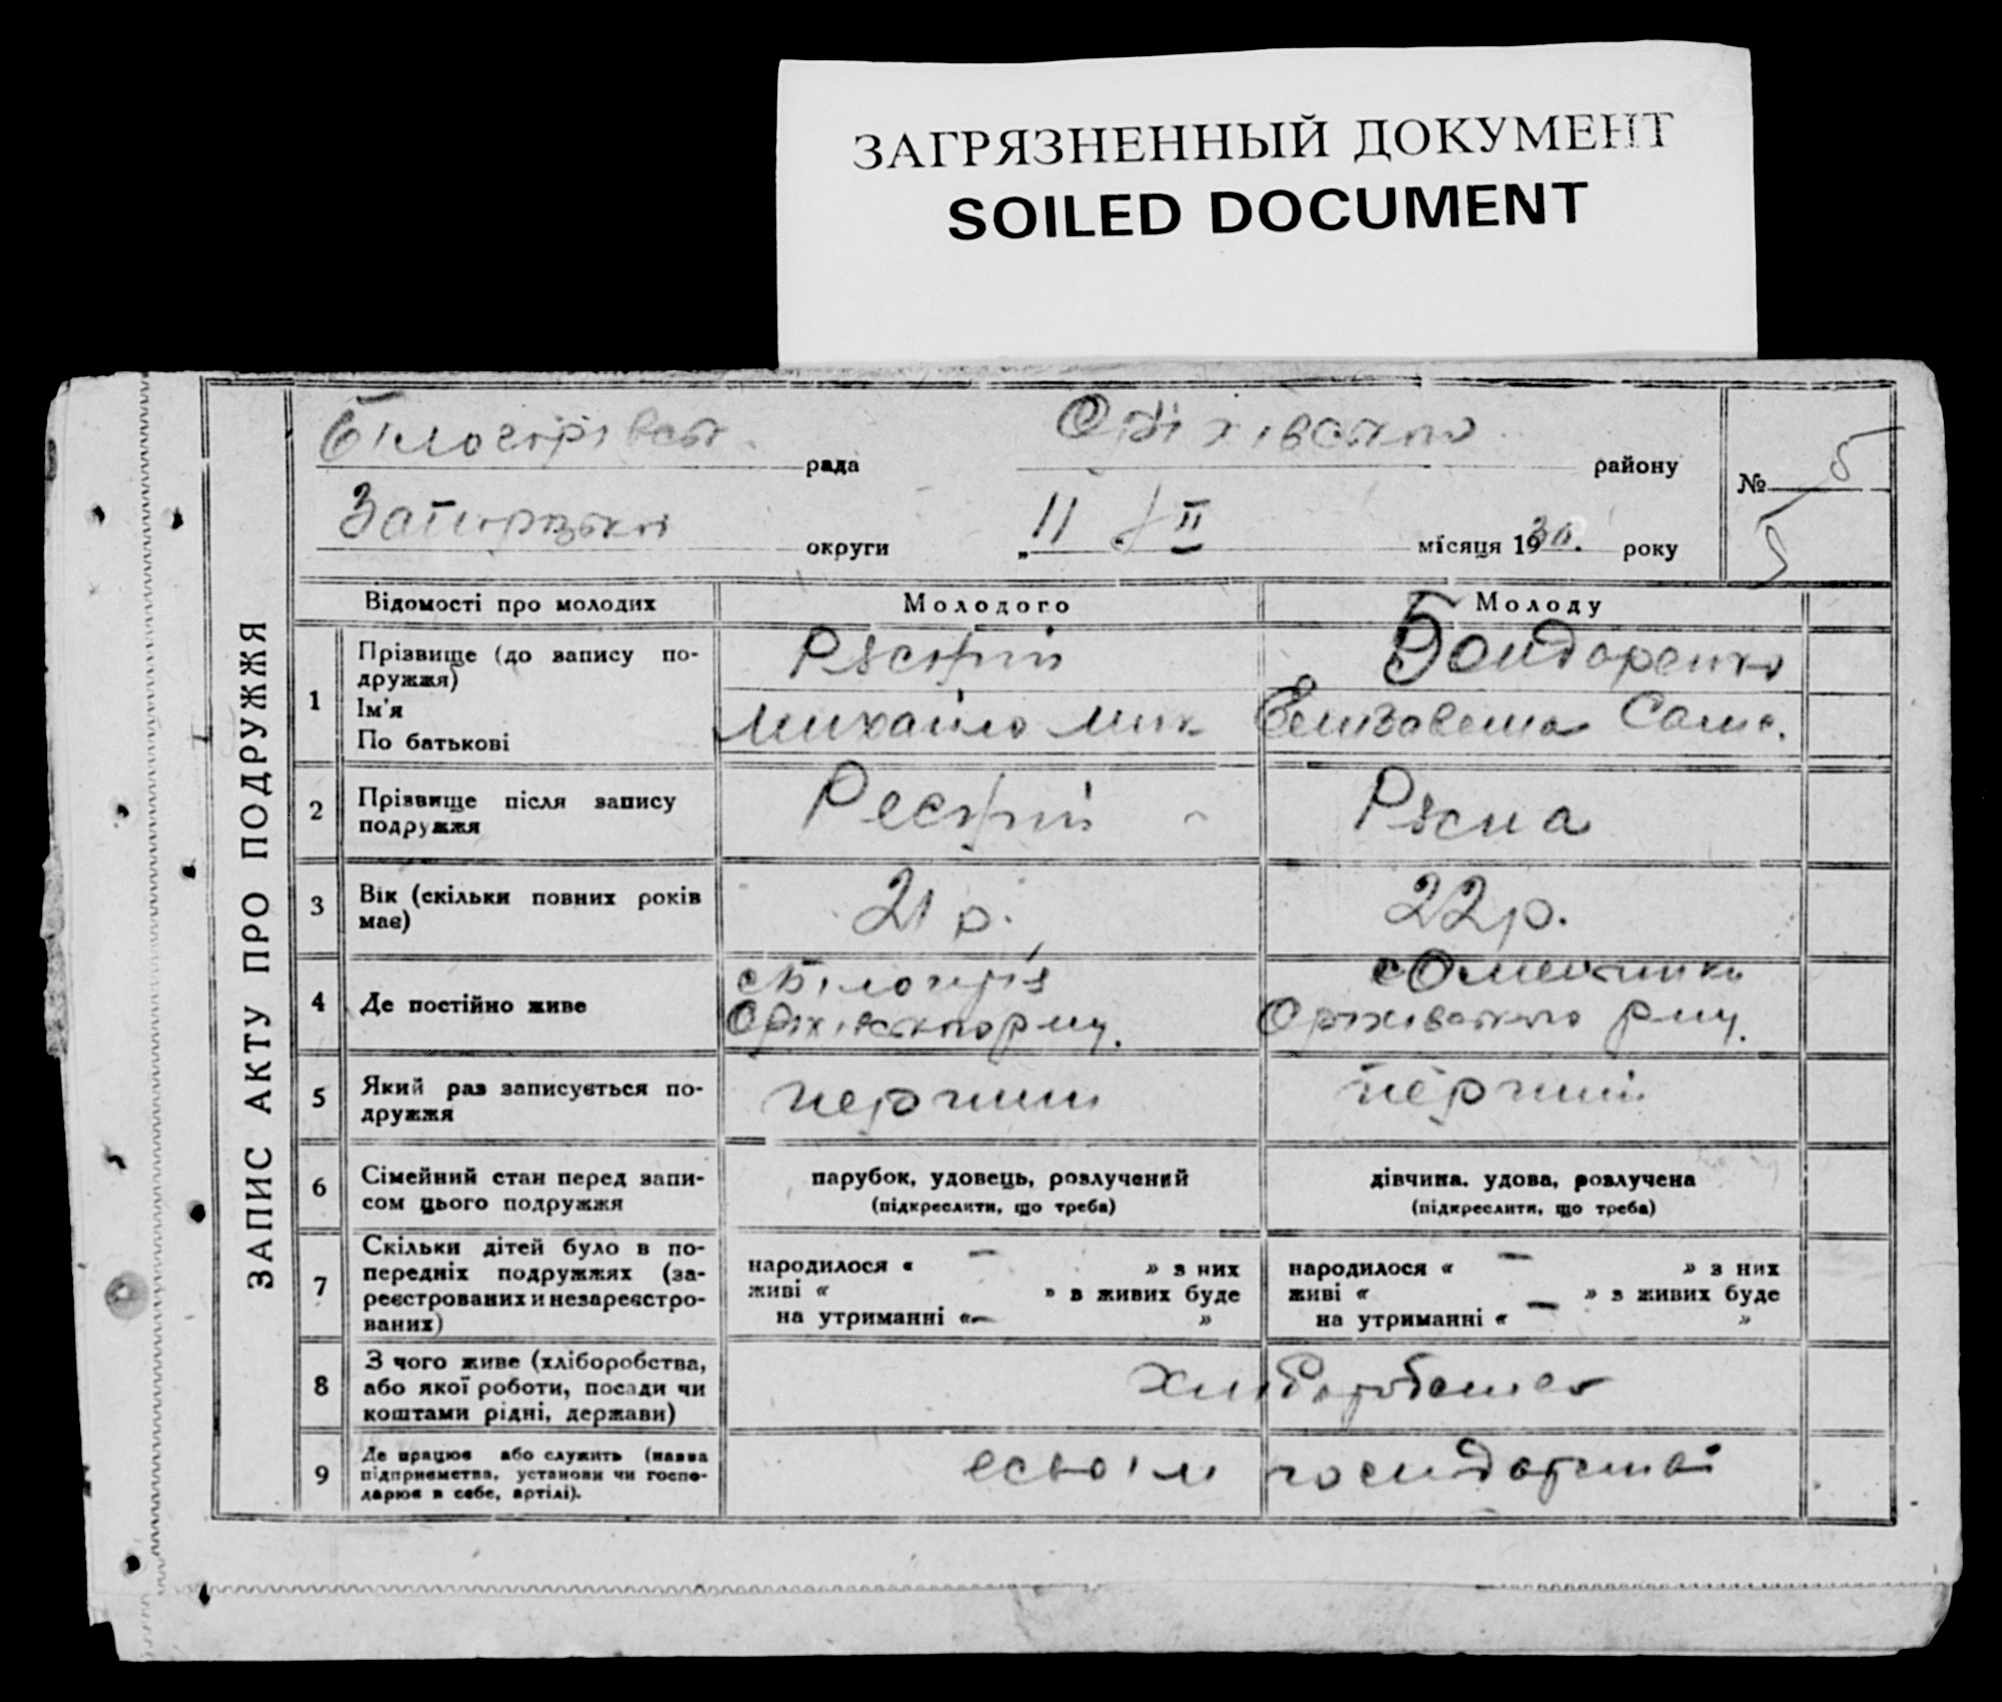 ЗАГРЯЗНЕННЫЙ ДОКУМЕНТ
SOILED DOCUMENT
ЗАПИС АКТУ ПРО ПОДРУЖЖЯ
рада
району
№ 5
5
округи „11 II місяця 1930. року
Відомості про молодих Молодого Молоду
1 Прізвище (до запису по-
дружжя)
Ім'я
По батькові
Бондаренко
Михайло Мик Єлизавета Сам.
2 Прізвище після запису
подружжя
Рясна
3 Вік (скільки повних років
має)
21 р. 22 р.
4 Де постійно живе
5 Який раз записується по-
дружжя
перший перший
6 Сімейний стан перед запи-
сом цього подружжя
парубок, удовець, розлучений
(підкреслити, що треба)
дівчина. удова, розлучена
(підкреслити, що треба)
7 Скільки дітей було в по-
передніх подружжях (за-
реєстрованих и незареєстро-
ваних)
народилося « — » з них
живі « » в живих буде
на утриманні «— »
народилося « — » з них
живі « » з живих буде
на утриманні « — »
8 З чого живе (хліборобства,
або якої роботи, посади чи
коштами рідні, держави)
9 Де працює або служить (назва
підприємства, установи чи госпо-
дарює в себе, артілі).